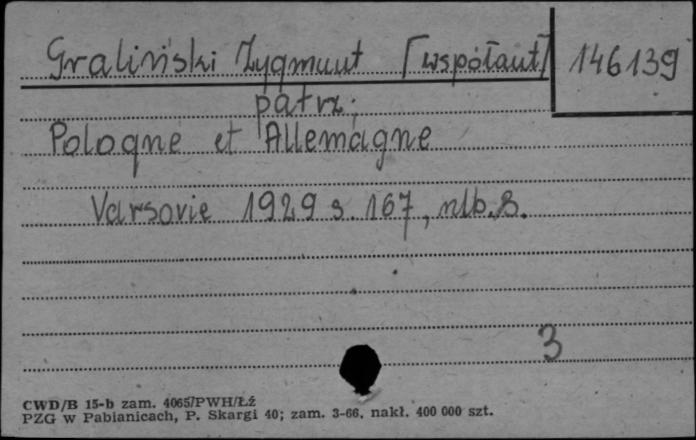 Graliński Zygmunt [współaut] 146139
patrz:
Pologne et Allemagne
Varsovie 1929 s. 167, nlb. 8.
3
CWD/B 15-b zam. 4065/PWH/Łź
PZG w Pabianicach, P. Skargi 40; zam. 3-66, nakł. 400 000 szt.